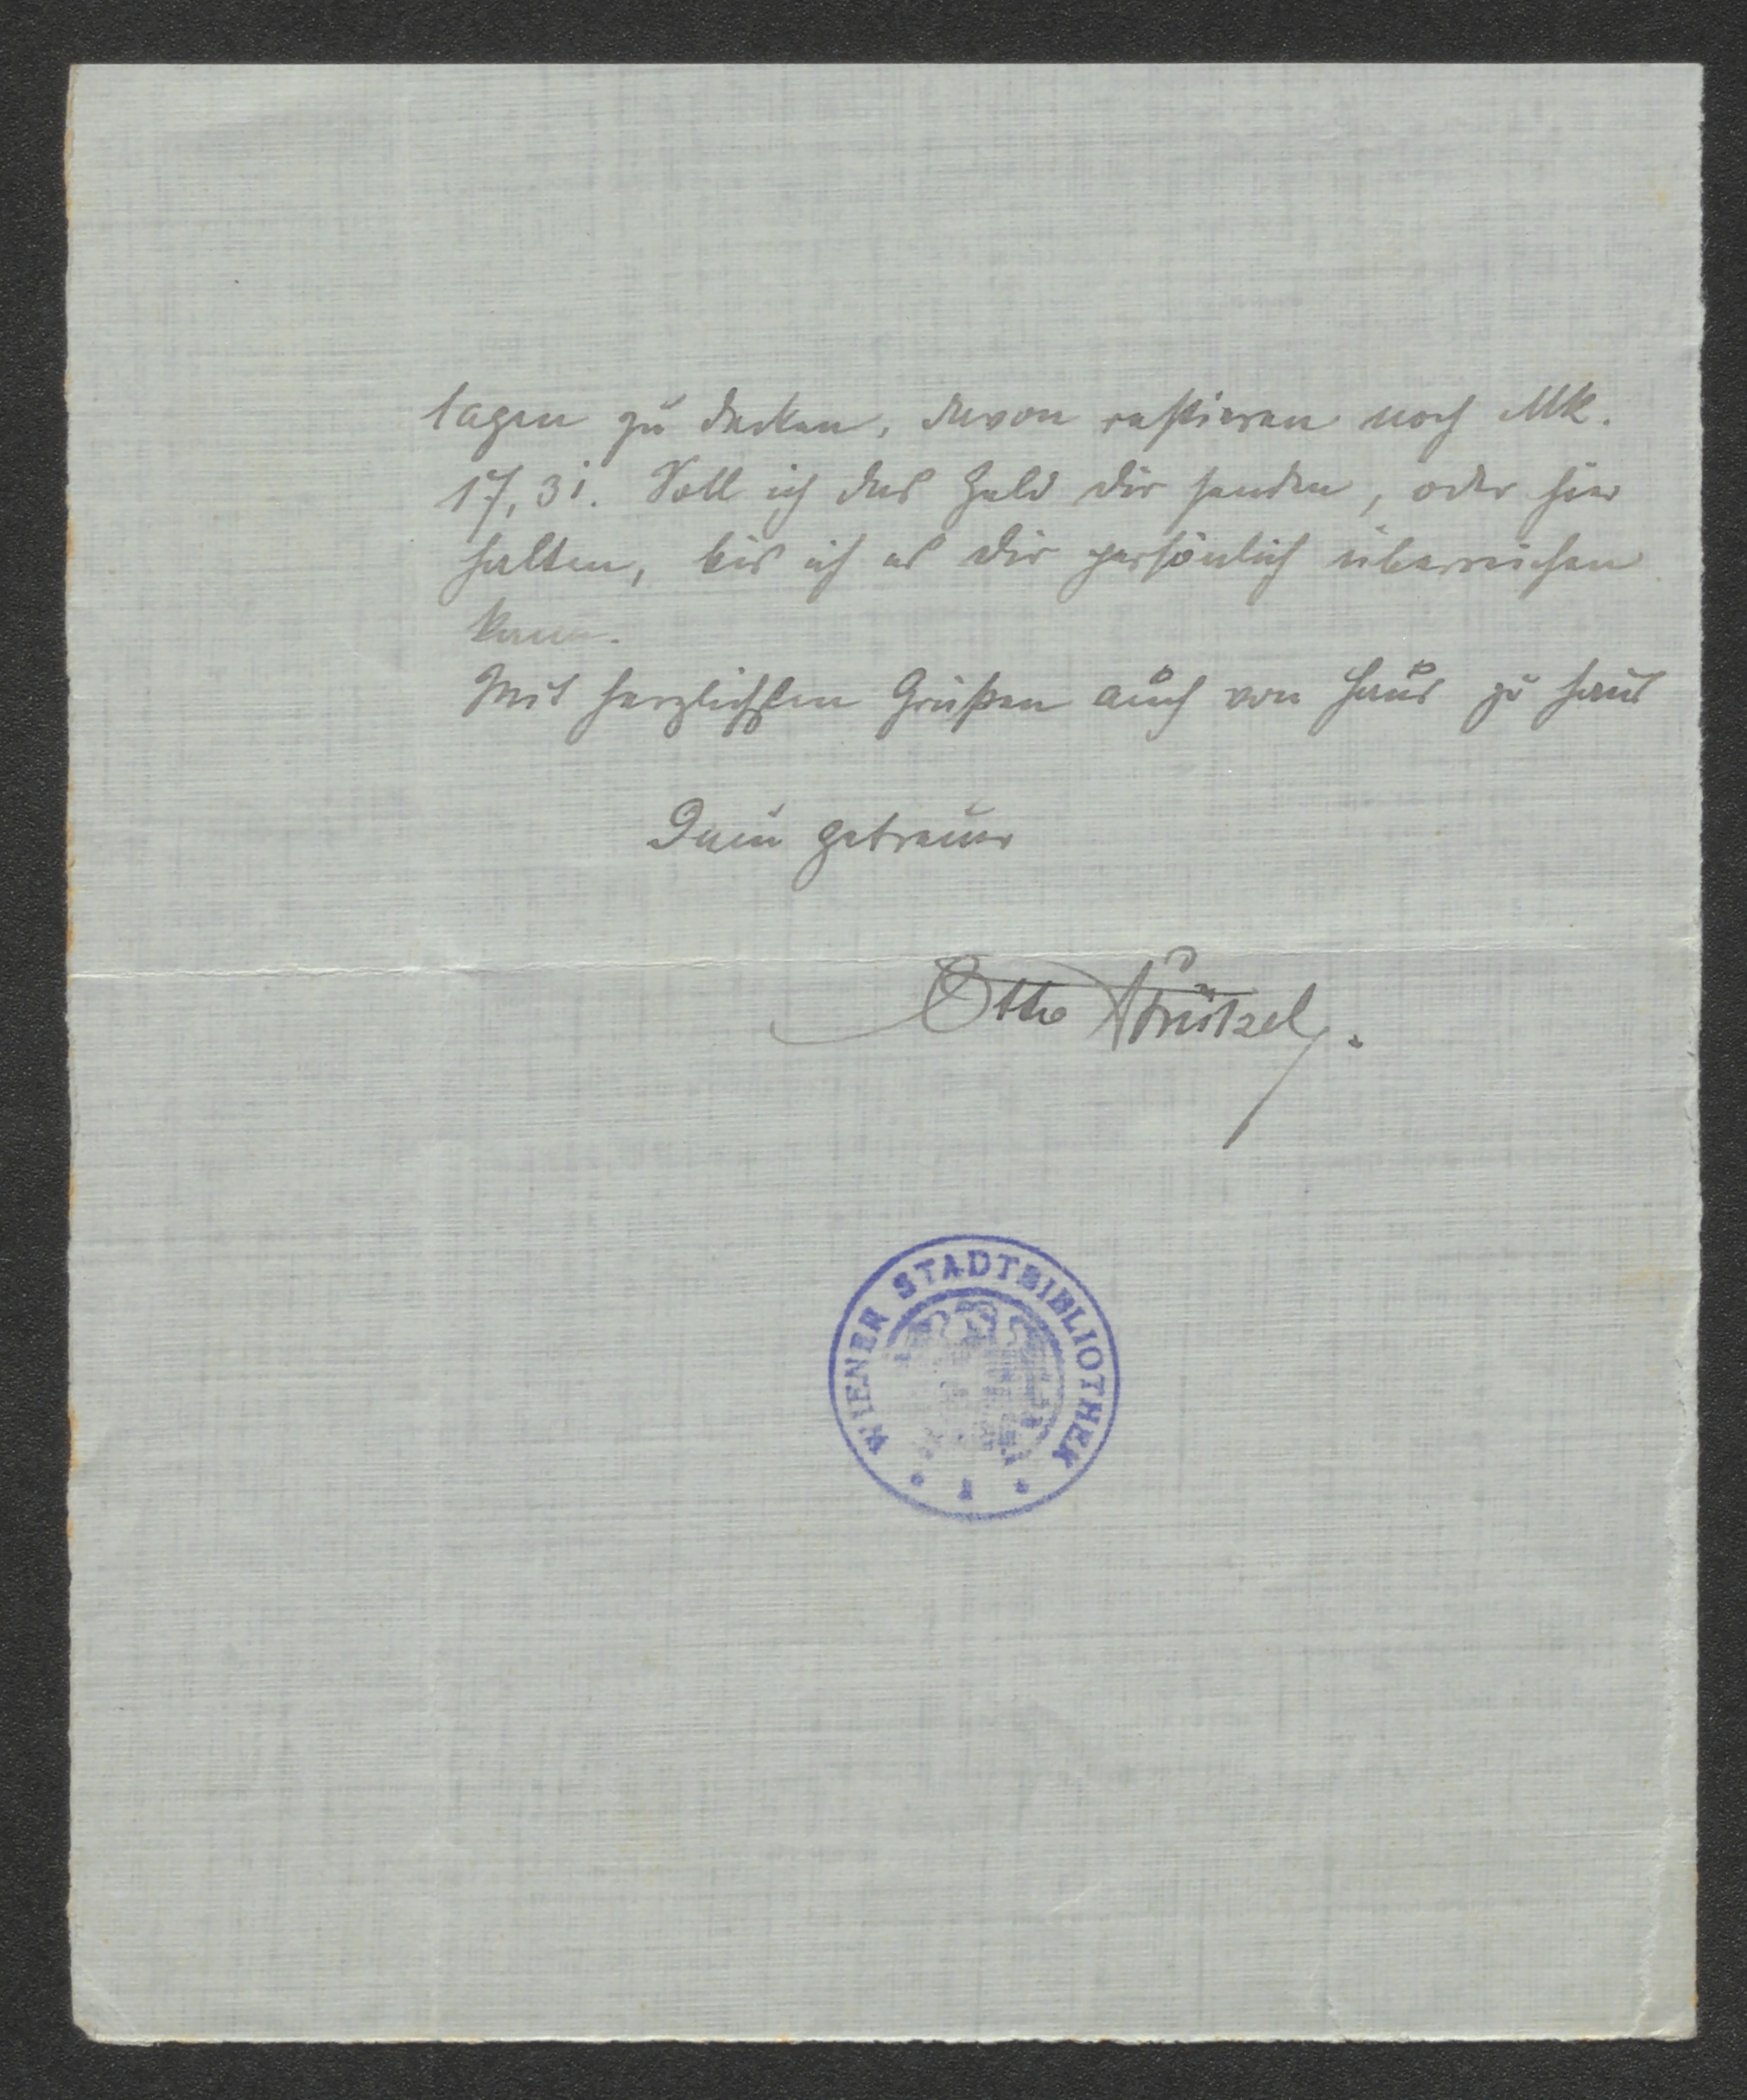 lagen zu decken, davon restieren noch Mk.
17,31. Soll ich das Geld dir senden, oder hier
halten, bis ich es dir persönlich überreichen
kann.
Mit herzlichsten Grüßen auch von Haus zu Haus
Dein getreuer
Otto Strützel.
WIENER STADTBIBLIOTHEK